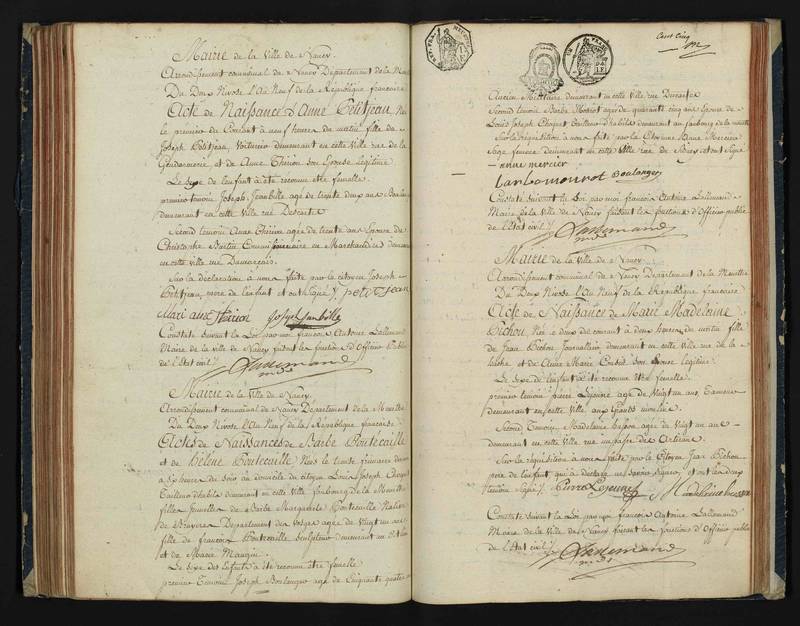 Mairie de la Ville de Nancy.
Arrondissement communal de Nancy Département de la Meurthe
Du Deux Nivose l'An Neuf de la République française
Acte de Naissance d'Anne Petitjean, Née
le premier du Courant à neuf heures du matin fille de
Joseph Petitjean, Voiturier demeurant en cette Ville rue de la
Gendarmerie et de Anne Thirion son Epouse légitime
Le sexe de l'enfant a été reconnu être femelle.
premier témoin Joseph Jeanbille agé de trente deux ans
demeurant en cette Ville rue Descartes
Second temoin Anne Thirion agée de trente ans Epouse de
Christophe Bastien Commissionnaire en Marchandises demeurant
en cette ville rue
Sur la déclaration à nous faite par le citoyen Joseph
Petitjean, père de l'enfant et ont signé /. petitjean
Mari anne therion Joseph Janbille
Constaté suivant la Loi par moi françois Antoine Lallemand
Maire de la ville de Nancy faisant les fonctions d'Officier Public
de l'Etat civil /. Lallemand
Mairie de la Ville de Nancy.
Arrondissement communal de Nancy Département de la Meurthe
Du Deux Nivose l'An Neuf de la République française
Actes de Naissances de Barbe Pontécaille
et de Hélène Pontecaille Nées le trente frimaire dernier
à heures du soir au domicile du citoyen Louis Joseph
Tailleur d'habits demeurant en cette Ville Faubourg de la
filles jumelles de Barbe Margueritte Pontecaille Native
de Bruyeres Département des Vosges agée de Vingt un ans
fille de françois Pontecaille Sculpteur demeurant au
et de Marie Mengin.
Le sexe des Enfants a été reconnu être femelle
premier Temoin Joseph Boulanger agé de Cinquante quatre ans
Cent Cinq
Ancien Militaire demeurant en cette Ville rue Descartes
Second temoin Barbe agée de quarante cinq ans Epouse de
Louis Joseph Tailleur d'habits demeurant au faubourg de la
Sur la réquisition à nous faite par la Citoyenne Anne Mercier
Sage femme demeurant en cette Ville rue de et ont Signé
anne mercier
Boulanger
Constaté suivant la Loi par moi françois Antoine Lallemand
Maire de la Ville de Nancy faisant les fonctions d'Officier public
de l'Etat civil /. Lallemand
Mairie de la Ville de Nancy.
Arrondissement communal de Nancy Département de la Meurthe
Du Deux Nivose l'An Neuf de la République française
Acte de Naissance de Marie Madeleine
Pichon, Née le deux du courant à deux heures du matin fille
de Jean Pichon Journallier demeurant en cette Ville rue de la
et de Anne Marie son Epouse légitime.
Le sexe de l'enfant a été reconnu être femelle.
premier temoin pierre Lejeune agé de Vingt un ans,
demeurant en cette Ville aux Grands moulins.
Second Temoin Madelaine husson agée de Vingt un ans
demeurant en cette Ville
Sur la réquisition à nous faite par le Citoyen Jean Pichon
pere de l'enfant qui a déclaré ne savoir signer, et ont les deux
temoins Signé /. Pierre Lejeune
Constaté suivant la Loi par moi françois Antoine Lallemand
Maire de la Ville de Nancy faisant les fonctions d'Officier public
de l'Etat civil /. Lallemand